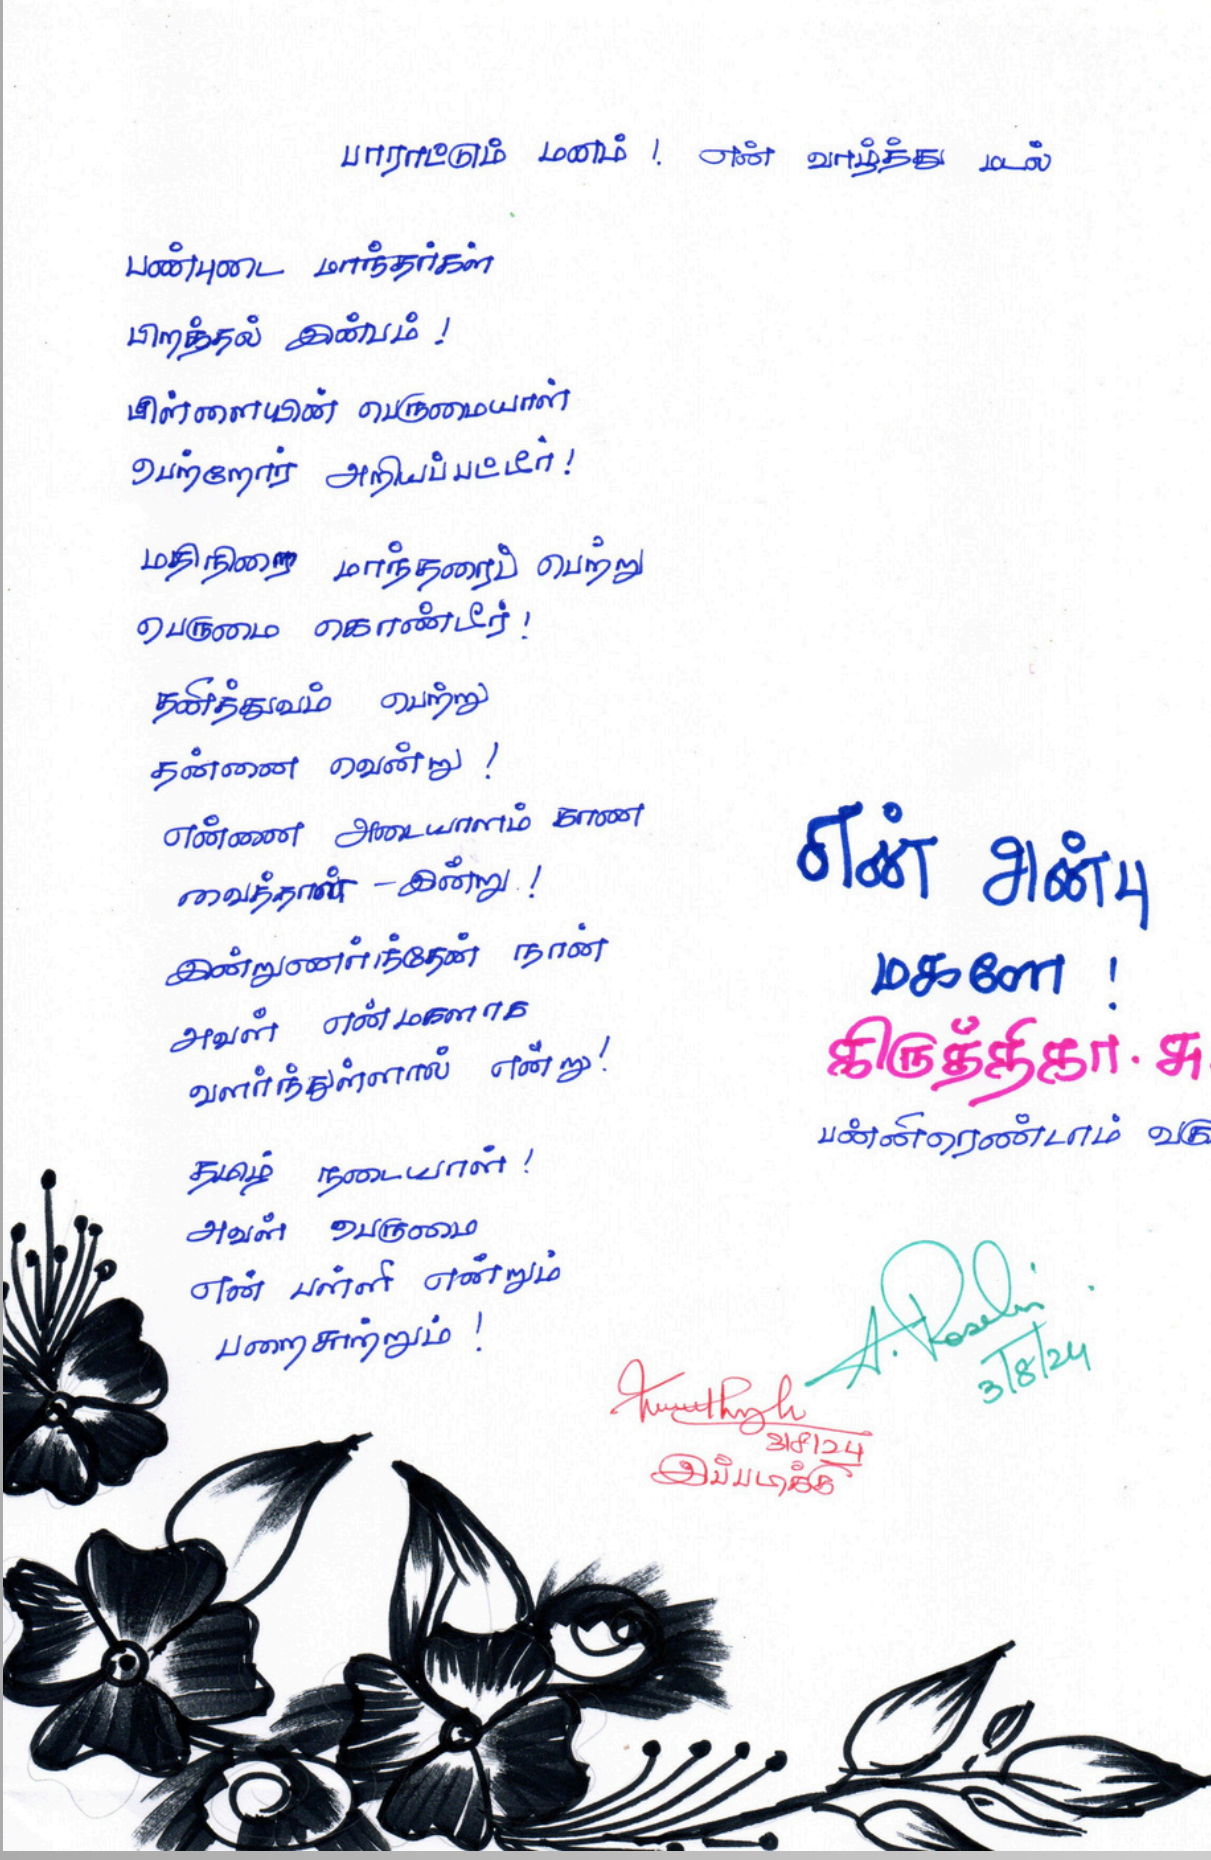 பாராட்டும் மனம் ! என் வாழ்த்து மடல்
பண்புடை மாந்தர்கள்
பிறத்தல் இன்பம் !
பிள்ளையின் பெருமையாள்
பெற்றோர் அறியப்பட்டீர் !
மதிநிறை மாந்தரைப் பெற்று
பெருமை கொண்டீர் !
தனித்துவம் பெற்று
தன்னை வென்று !
என்னை அடையாளம் காண
வைத்தாள் - இன்று !
இன்றுணர்ந்தேன் நான்
அவள் என்மகளாக
வளர்ந்துள்ளால் என்று !
தமிழ் நடையாள் !
அவள் பெருமை
என் பள்ளி என்றும்
பறைசாற்றும் !
என் அன்பு
மகளே !
கிருத்திகா . சு.
பன்னிரெண்டாம் வகு
A. Roselin
3/8/24
3/8/24
இப்படிக்கு